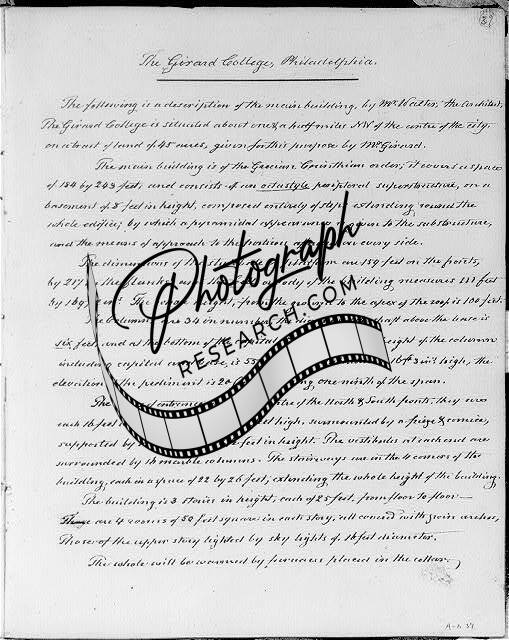 37
The Girard College, Philadelphia.
The following is a description of the main building, by Mr. Walter, the architect,
The Girard College is situated about one & a half miles NW of the centre of the city,
on a tract of land of 45 acres, given for this purpose by Mr. Girard.
The main building is of the Grecian Corinthian order; it covers a space
of 184 by 243 feet, and consists of an octastyle peripteral superstructure, on a
basement of 8 feet in height, composed entirely of steps extending round the
whole edifice; by which a pyramidal appearance is given to the substructure,
and the means of approach to the porticos on every side.
The dimensions of the are 159 feet on the fronts,
by 217 flanks body of the building measures 111 feet
by 169 from the ground to the apex of the roof is 100 feet.
The columns are 34 in number shaft above the base is
six feet, and at the bottom of the height of the columns
including capital and is 55 high, the
elevation of the pediment is 20 one ninth of the span.
The entrance of the North & South fronts, they are
each 16 feet high, surmounted by a frieze & cornice,
supported by feet in height. The vestibules at each end are
surrounded by 16 marble columns. The stairways are in the 4 corners of the
building, each in a space of 22 by 26 feet, extending the whole height of the building.
The building is 3 stories in height, each of 25 feet, from floor to floor—
There are 4 rooms of 50 feet square in each story, all covered with groin arches,
Those of the upper story lighted by sky lights of 16 feet diameter.
The whole will be warmed by furnaces placed in the cellar.
Photograph
RESEARCH.COM